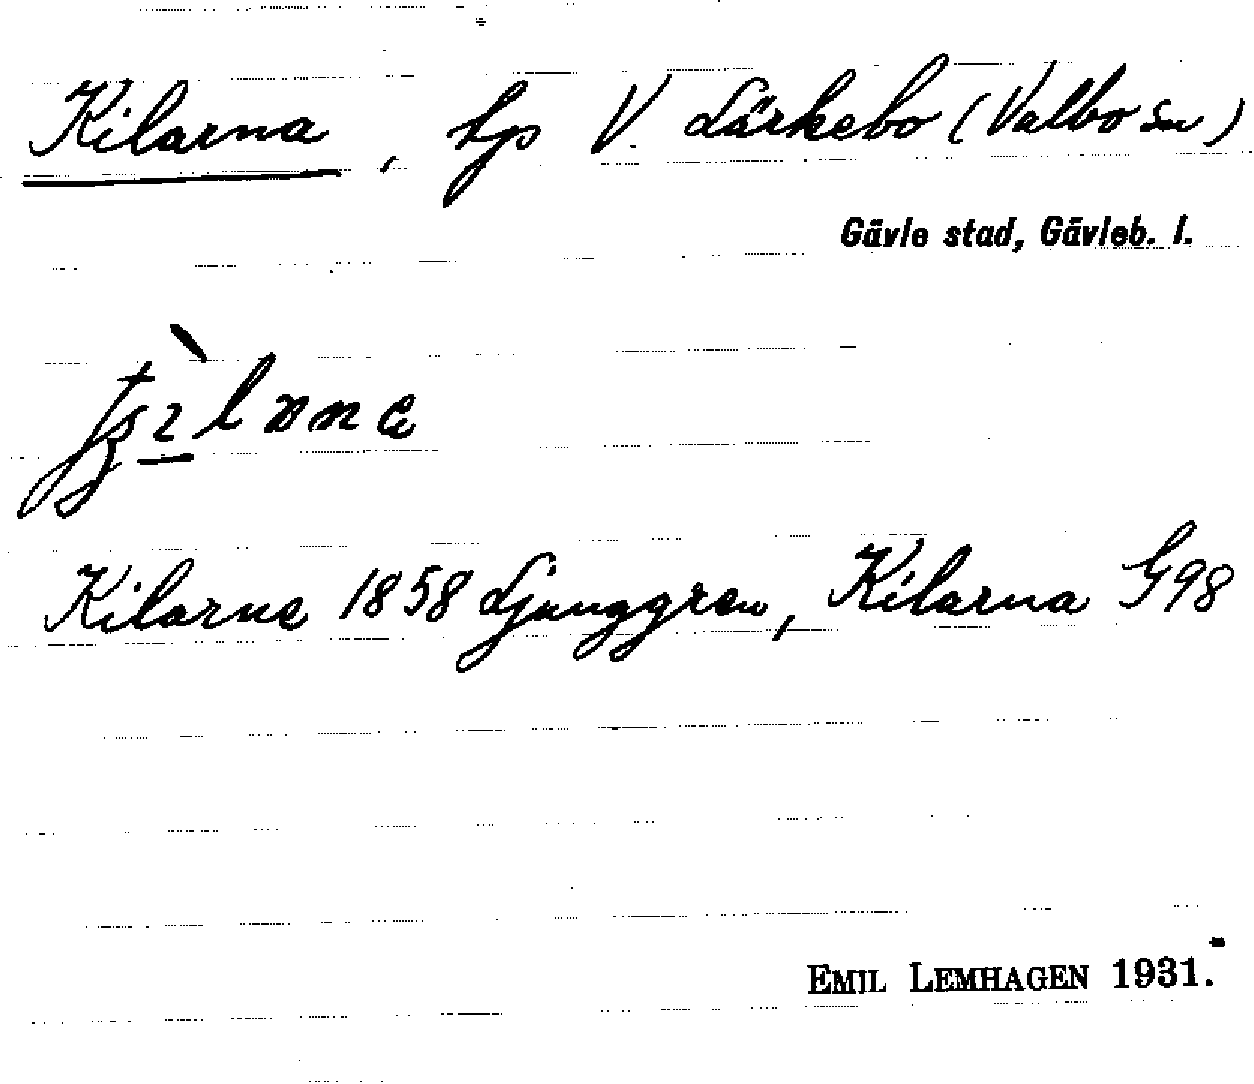 Kilarna, hp V. Lärkebo (Valbo sn)
Gävle stad, Gävleb. l.
Kilarne 1858 Ljunggren, Kilarna G98
EMIL LEMHAGEN 1931.